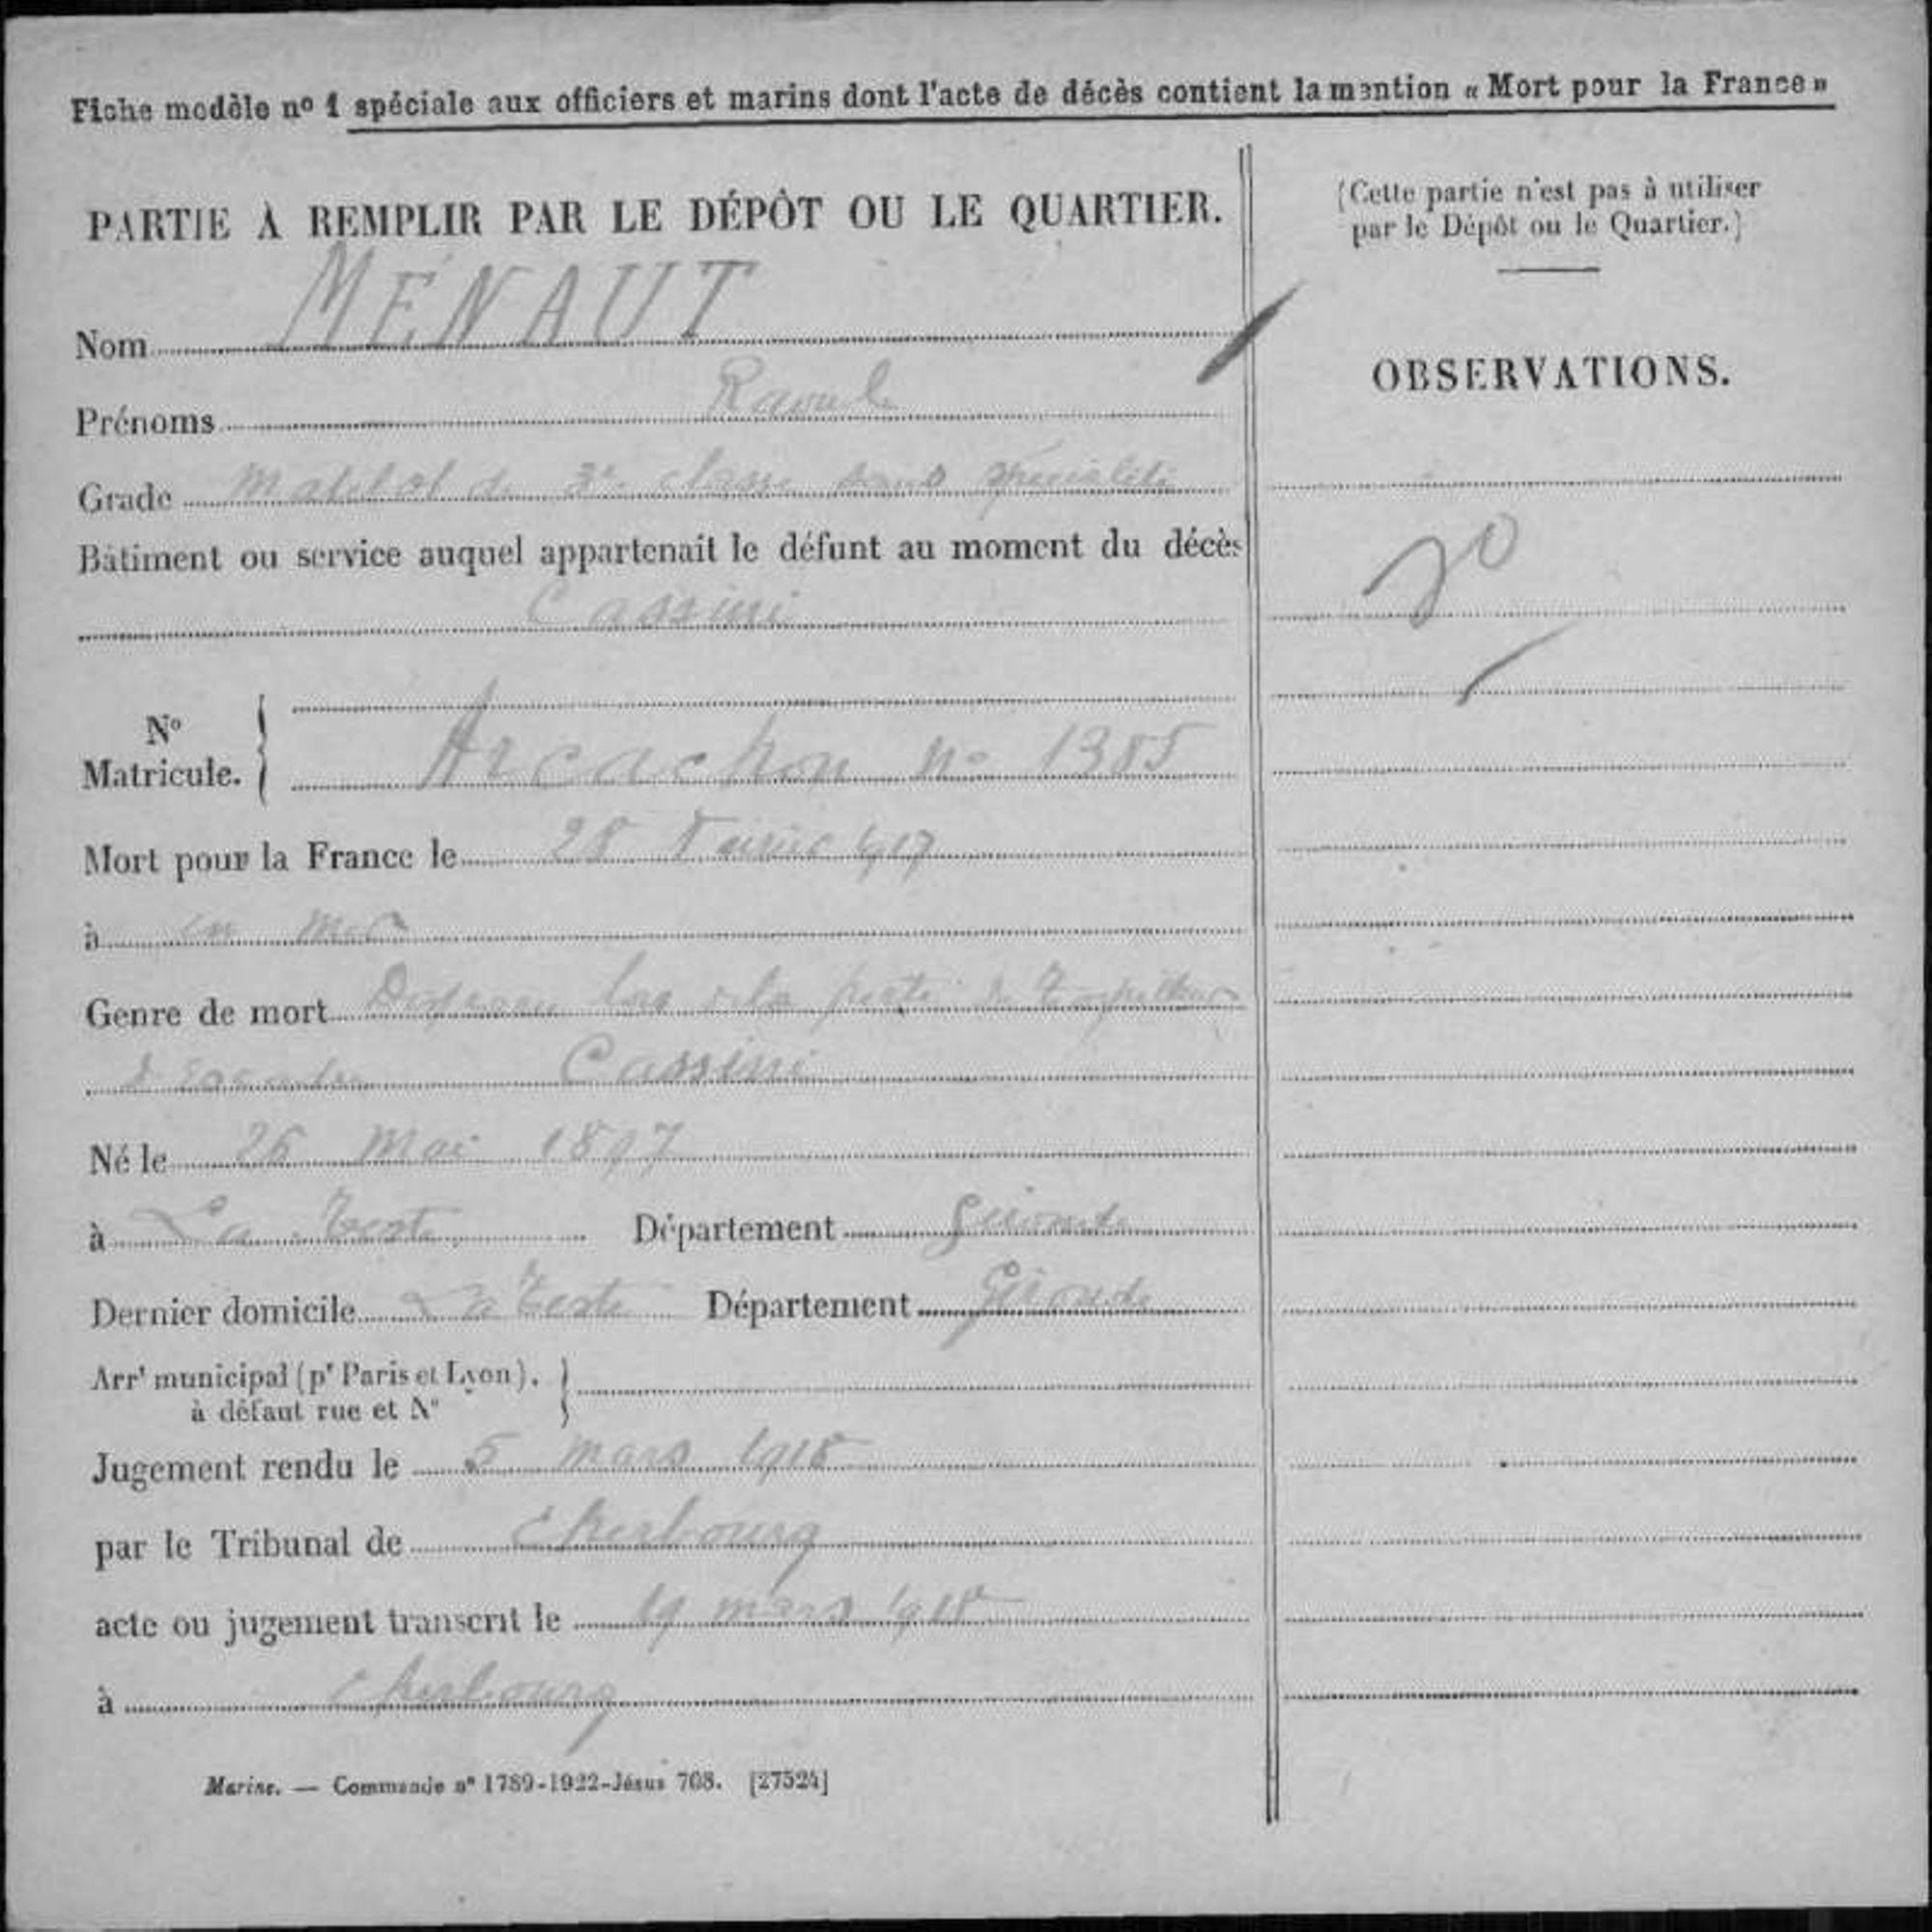 Fiche modèle nº 1 spéciale aux officiers et marins dont l'acte de décès contient la mention « Mort pour la France »
PARTIE À REMPLIR PAR LE DÉPÔT OU LE QUARTIER.
Nom MÉNAUT
Prénoms Raoul
Grade Matelot de 3e classe sans spécialité
Bâtiment ou service auquel appartenait le défunt au moment du décès
Cassini
Nº Matricule. Arcachon nº 1385
Mort pour la France le 28 Février 1917
à en mer
Genre de mort Disparu lors de la perte de
d'Escadre Cassini
Né le 26 Mai 1897
à La Teste Département Gironde
Dernier domicile La Teste Département Gironde
Arrt municipal (pr Paris et Lyon),
à défaut rue et Nº
Jugement rendu le 5 mars 1918
par le Tribunal de Cherbourg
acte ou jugement transcrit le 19 mars 1918
à Cherbourg
Marine. — Commande nº 1789-1922-Jésus 708. [27524]
(Cette partie n'est pas à utiliser
par le Dépôt ou le Quartier.)
OBSERVATIONS.